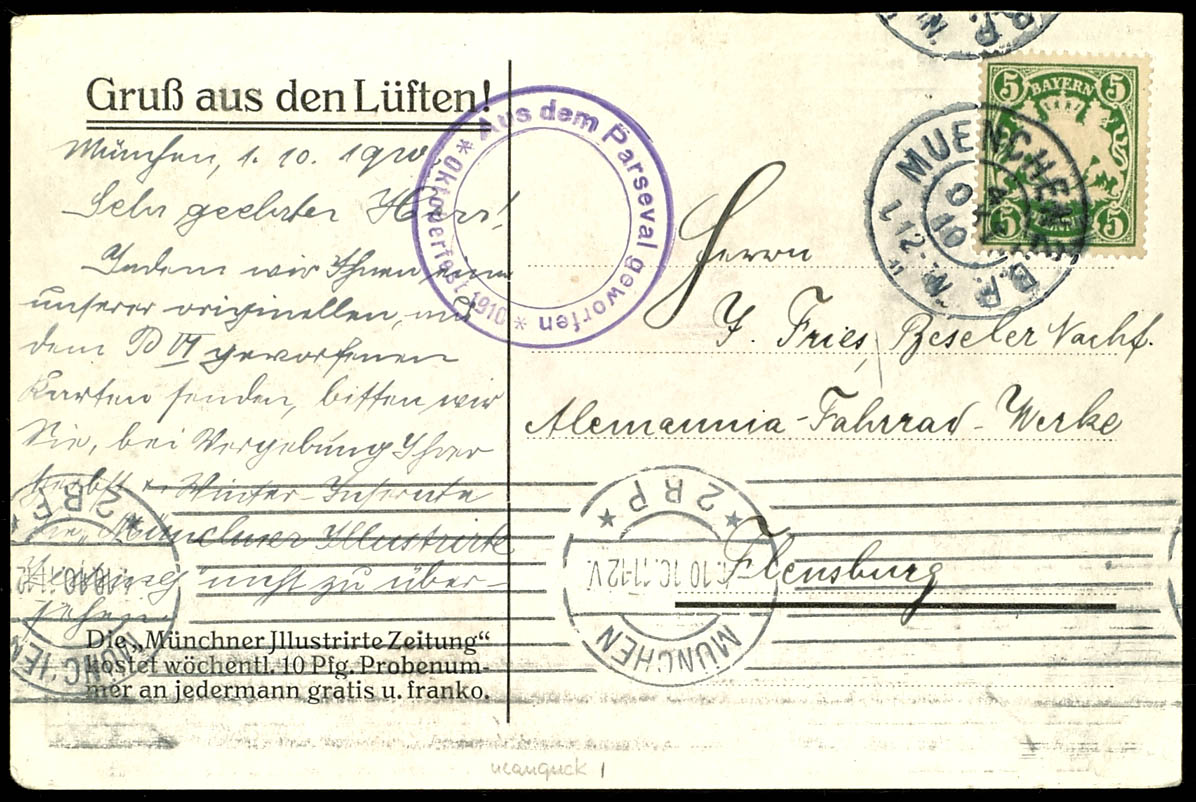 Gruß aus den Lüften!
München, 1. 10. 1910
Sehr geehrter Herr!
Indem wir Ihnen eine
unserer originellen, aus
dem P VI geworfenen
Karten senden, bitten wir
Sie, bei Vergebung Ihrer
Herbst u. Winter-Inserate
die „Münchner Illustrirte
Zeitung" nicht zu über-
sehen.
Die „Münchner Jllustrirte Zeitung“
kostet wöchentl. 10 Pfg. Probenum-
mer an jedermann gratis u. franko.
Aus dem Parseval geworfen
* Oktoberfest 1910 *
5 BAYERN 5
5 5
MUENCHEN
B.P.
Herrn
J. Fries, Beseler Nachf.
Alemannia-Fahrrad-Werke
Flensburg
* 2 B P *
10 10. 11-12 V.
MÜNCHEN
2 B P
MÜNCHEN